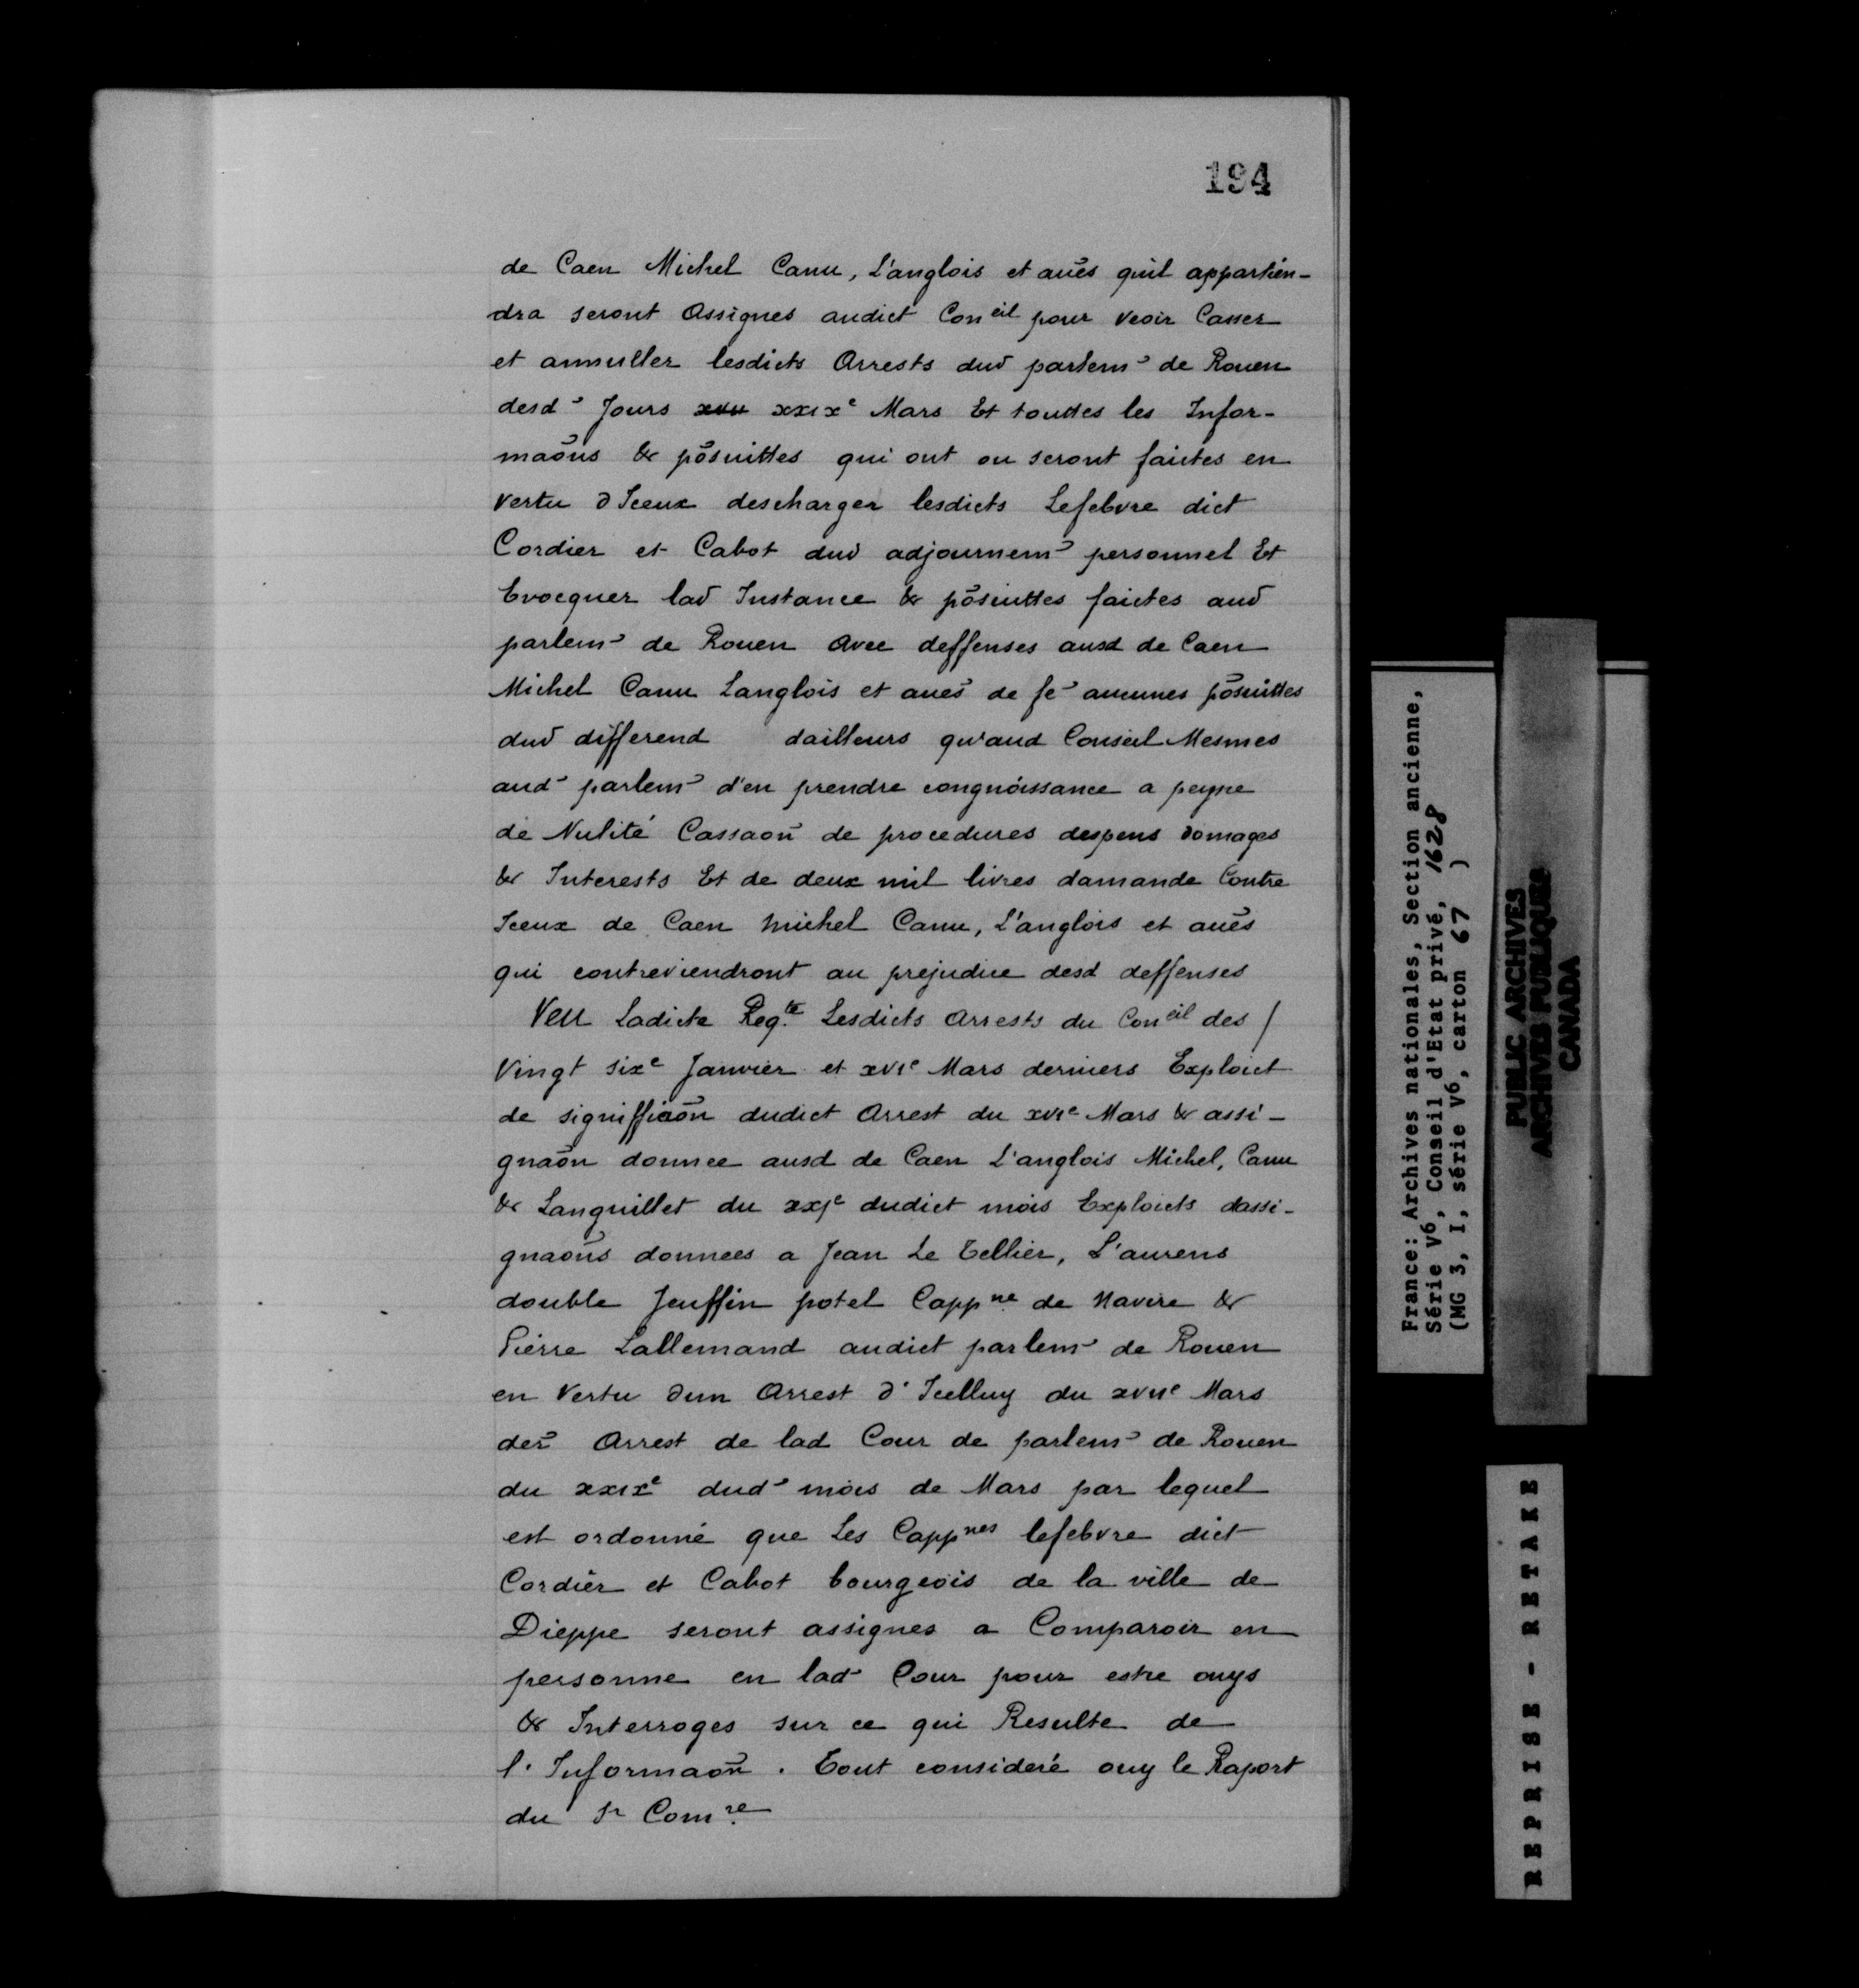 194
de Caen Michel Canu, L'anglois et auēs qu'il appartien-
dra seront Assignes audict Coneil pour veoir Casser
et annuller lesdicts Arrests dud parlem de Rouen
desd Jours xxixe Mars Et touttes les Infor-
maōns & pōsuittes qui ont ou seront faictes en
vertu d'Iceux descharger lesdicts Lefebvre dict
Cordier et Cabot dud adjournem personnel Et
Evocquer lad Instance & pōsuittes faictes aud
parlem de Rouen Avec deffenses ausd de Caen
Michel Canu Langlois et aues de fe aucunes pōsuittes
dud differend dailleurs qu'aud Conseil Mesmes
aud parlem d'en prendre congnoissance a peyne
de Nulité Cassaoū de procedures despens domages
& Interests Et de deux mil livres damande Contre
Iceux de Caen michel Canu, L'anglois et auēs
qui contreviendront au prejudice desd deffenses
Veu Ladicte Reqte Lesdicts Arrests du Coneil des /
Vingt sixe Janvier et xvie Mars derniers Exploict
de signifficaōn dudict Arrest du xvie Mars & assi-
gnaōn donnee ausd de Caen L'anglois Michel, Canu
& Languillet du xxje dudict mois Exploicts dassi-
gnaōns donnees a Jean Le Tellier, L'aurens
double Jeuffin potel Cappne de Navire &
Pierre Lallemand audict parlem de Rouen
en Vertu dun Arrest d'Icelluy du xviie Mars
der Arrest de lad Cour de parlem de Rouen
du xxixe dud mois de Mars par lequel
est ordonné que Les Cappnes lefebvre dict
Cordier et Cabot bourgeois de la ville de
Dieppe seront assignes a Comparoir en
personne en lad Cour pour estre ouys
& Interroges sur ce qui Resulte de
l'Informaōn. Tout consideré ouy le Raport
du Sr Comre
France: Archives nationales, Section ancienne,
Série V6, Conseil d'Etat privé, 1628
(MG 3, I, série V6, carton 67 )
PUBLIC ARCHIVES
ARCHIVES PUBLIQUES
CANADA
REPRISE - RETAKE